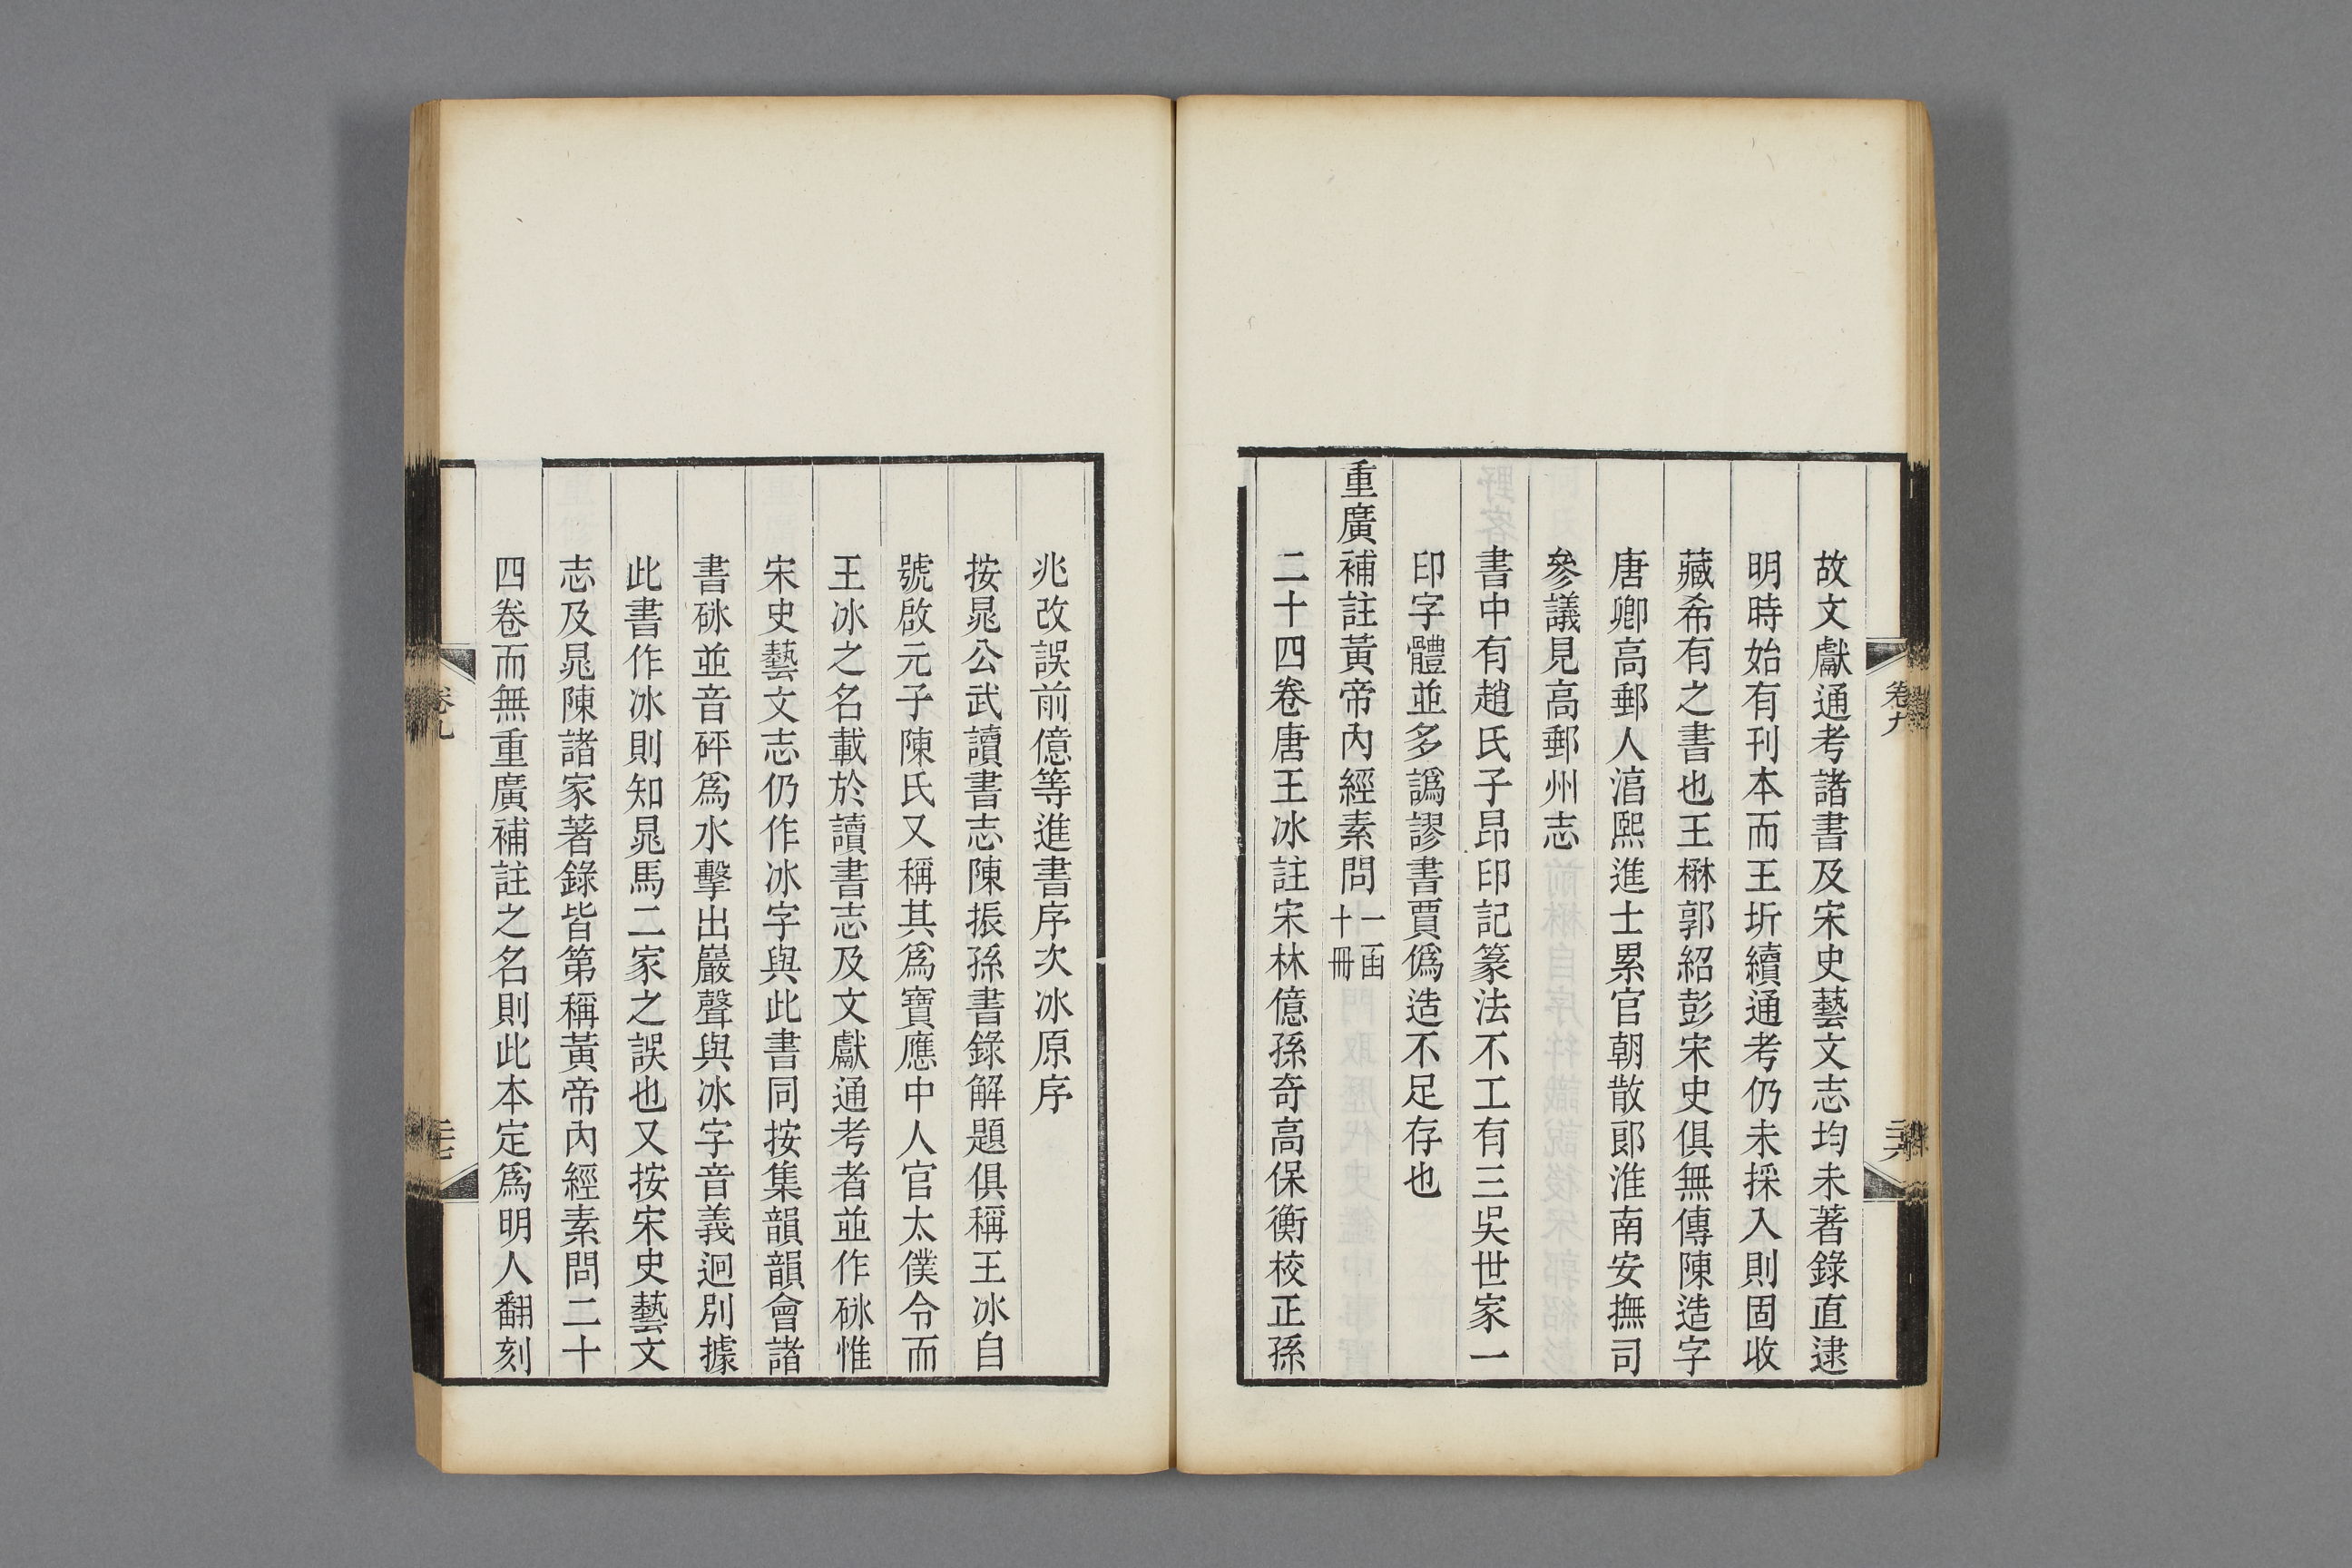 故文獻通考諸書及宋史藝文志均未著錄直逮
明時始有刊本而王圻續通考仍未採入則固收
藏希有之書也王楙郭紹彭宋史俱無傳陳造字
唐卿高郵人淳熙進士累官朝散郎淮南安撫司
參議見高郵州志
書中有趙氏子昂印記篆法不工有三吳世家一
印字體並多譌謬書賈僞造不足存也
重廣補註黃帝內經素問一函十冊
二十四卷唐王冰註宋林億孫奇高保衡校正孫
卷九
二十六
兆改誤前億等進書序次冰原序
按晁公武讀書志陳振孫書錄解題俱稱王冰自
號啟元子陳氏又稱其爲寶應中人官太僕令而
王冰之名載於讀書志及文獻通考者並作砅惟
宋史藝文志仍作冰字與此書同按集韻韻會諸
書砅並音砰爲水擊出巖聲與冰字音義迥別據
此書作冰則知晁馬二家之誤也又按宋史藝文
志及晁陳諸家著錄皆第稱黃帝內經素問二十
四卷而無重廣補註之名則此本定爲明人翻刻
卷九
二十七